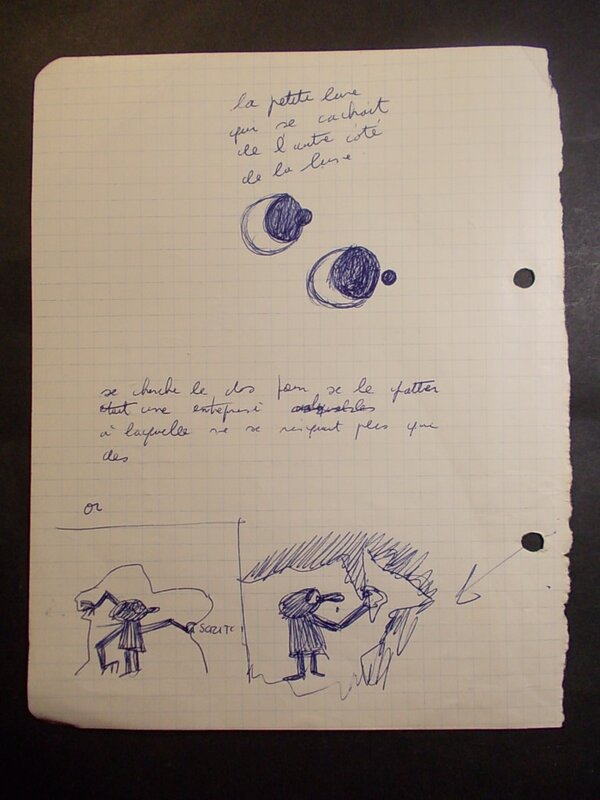 la petite lune
qui se cachait
de l'autre côté
de la lune
se cherche le dos pour se le gratter
était une entreprise
à laquelle ne se risquait plus que
des
or